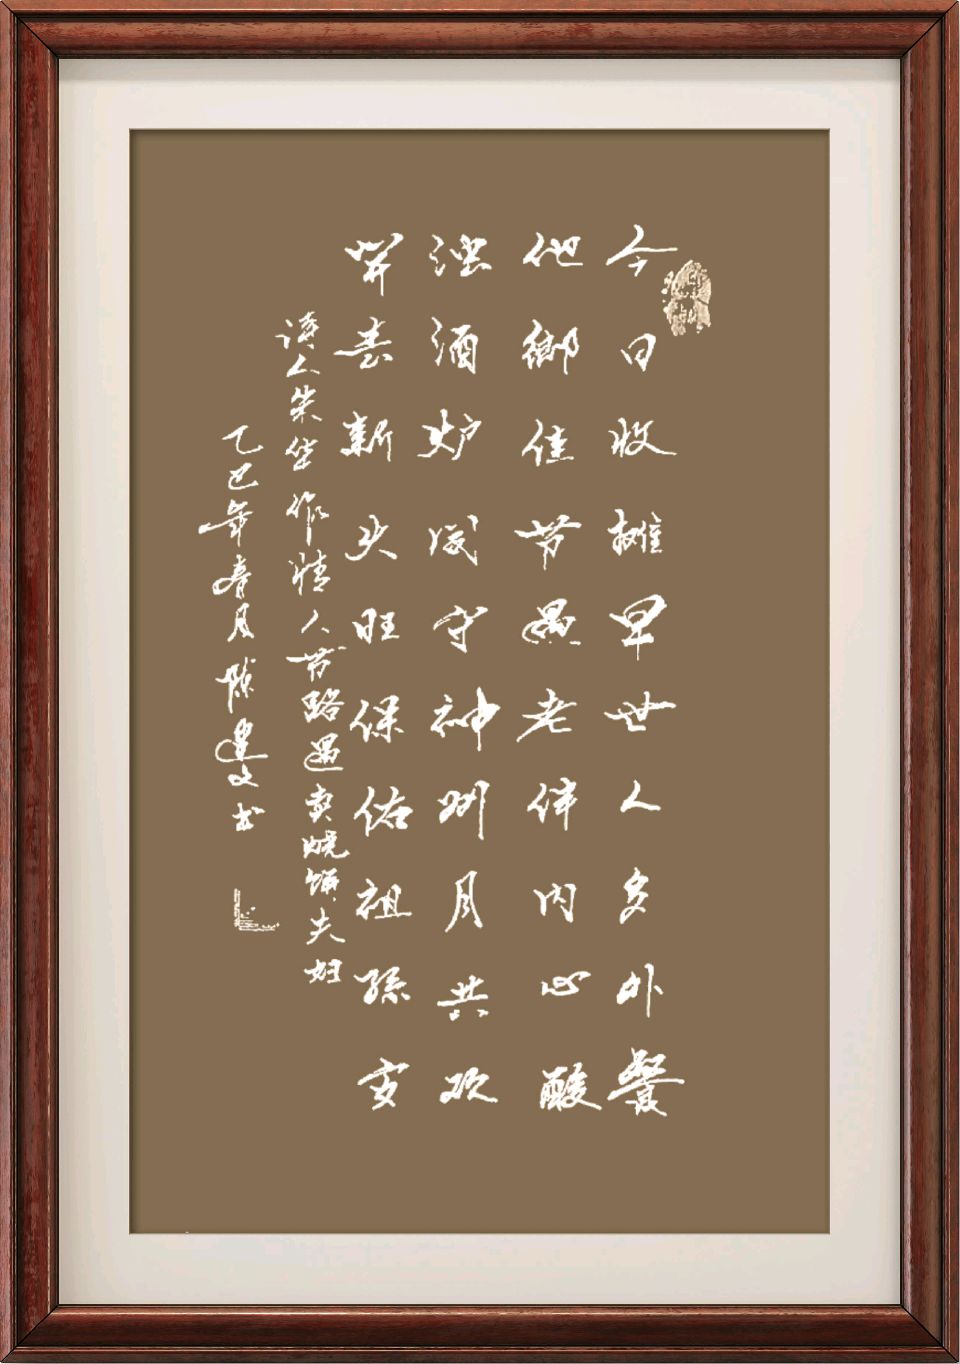 今日收摊早世人多外餐
他鄉佳节遇老伴内心酸
浊酒炉成守神州月共欢
开春新火旺保佑祖孙安
诗人朱华作情人节路遇卖烧饼夫妇
乙巳年春月陈建文书